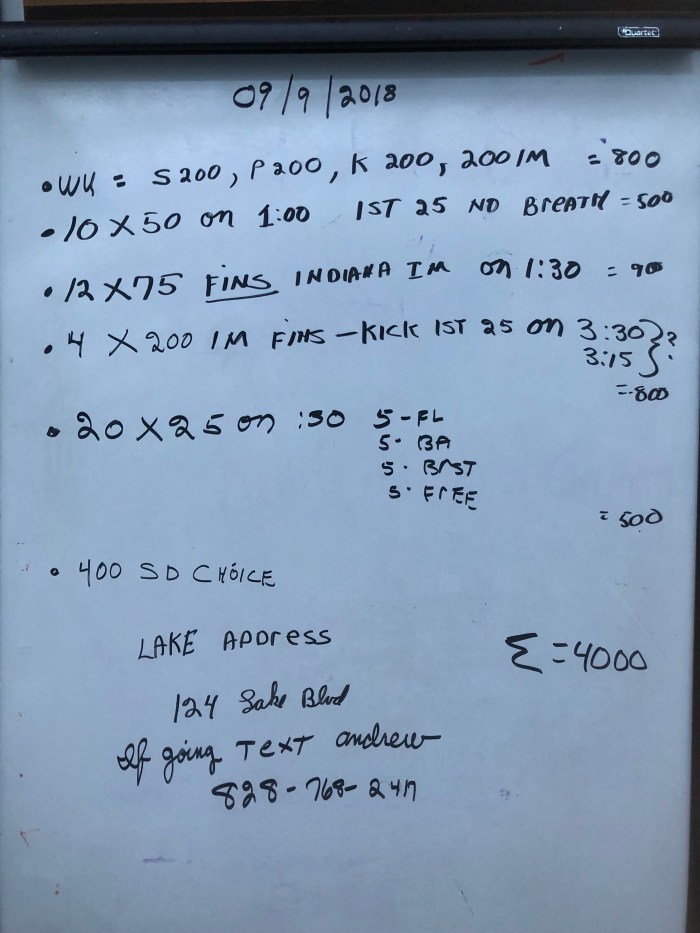 Quartet
09/9/2018
• WU = S200, P200, K 200, 200 IM = 800
• 10 X 50 on 1:00 1ST 25 NO BreATH = 500
• 12 X 75 FINS INDIANA IM on 1:30 = 900
• 4 X 200 IM FINS – KICK 1ST 25 on 3:30 } ?
3:15
= 800
• 20 X 25 on :30 5 - FL
5 - BA
5 - BRST
5 - FREE
= 500
• 400 SD CHOICE
LAKE ADDress
Σ = 4000
124 Lake Blvd
If going TEXT andrew
828-768-